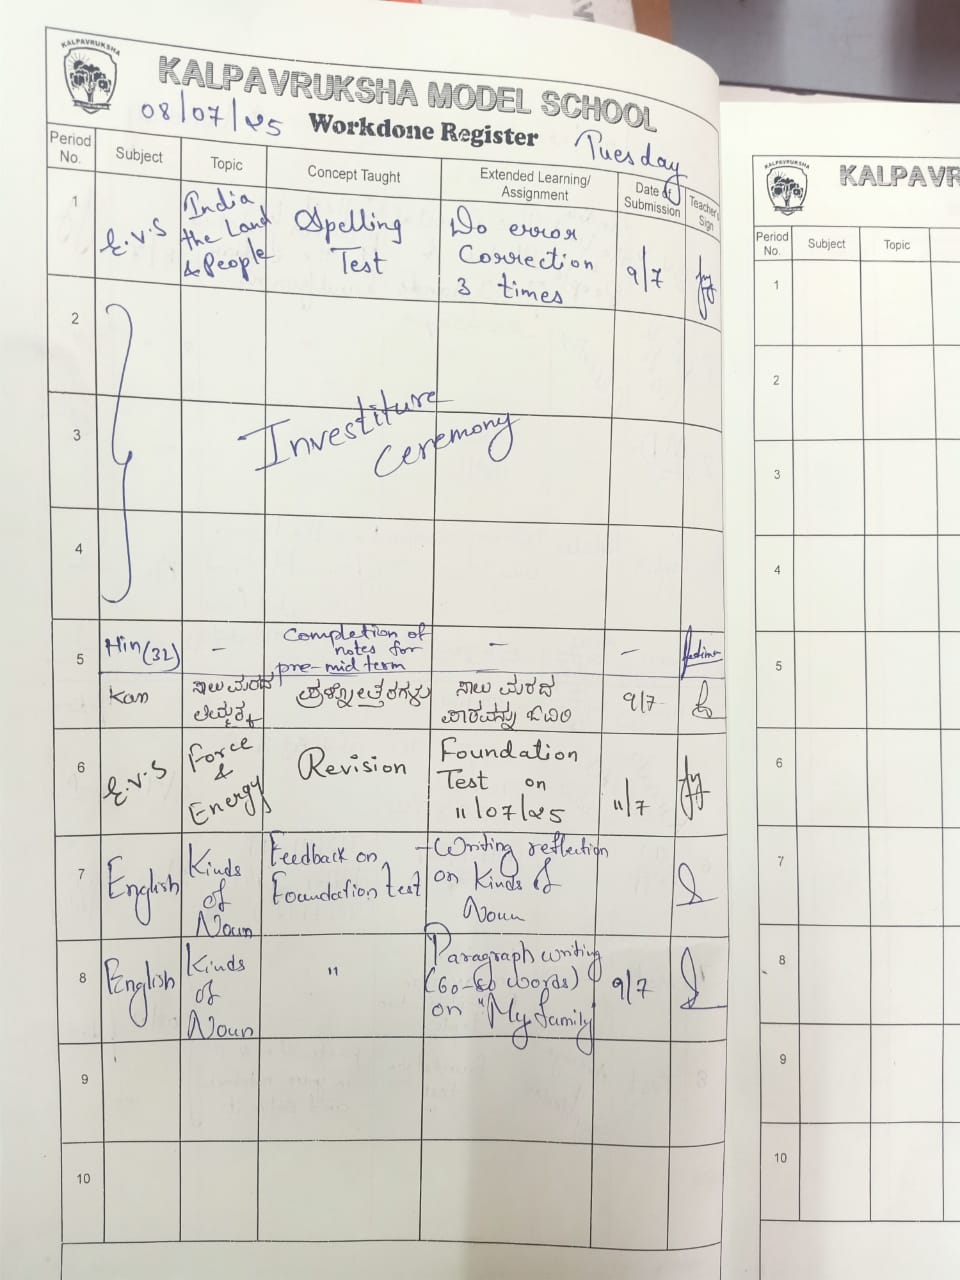 KALPAVRUKSHA
KALPAVRUKSHA MODEL SCHOOL
08/07/25 Workdone Register Tuesday
Period No. Subject Topic Concept Taught Extended Learning/ Assignment Date of Submission Teacher's Sign
1 E.V.S India, the Land & People Spelling Test Do error Correction 3 times 9/7
2
3 Investiture Ceremony
4
5 Hin(32) - Completion of notes for pre-mid term - -
Kan ಸಾಲು ಮರದ ಪ್ರಶ್ನೋತ್ತರಗಳು ಸಾಲು ಮರದ 9/7
6 E.V.S Force & Energy Revision Foundation Test on 11/07/25 11/7
7 English Kinds of Noun Feedback on Foundation test - Writing reflection on Kinds of Noun
8 English Kinds of Noun " Paragraph writing (60-80 words) on "My family" 9/7
9
10
KALPAVRUKSHA
KALPAVR
Period No. Subject Topic
1
2
3
4
5
6
7
8
9
10